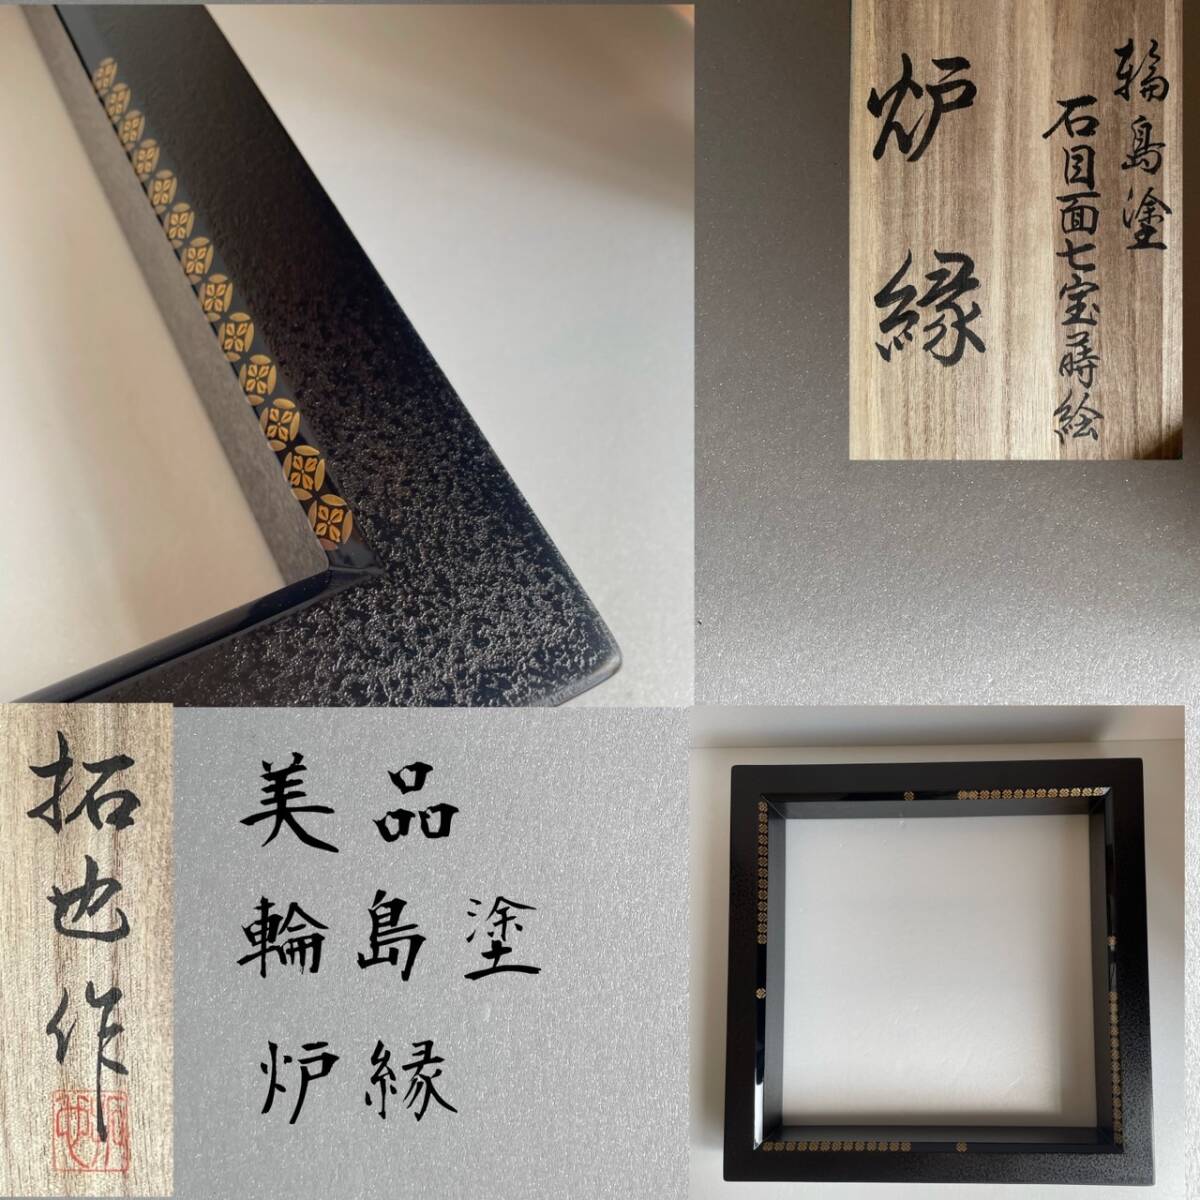 輪島塗
石目面七宝蒔絵
炉縁
拓也作
美品
輪島塗
炉縁